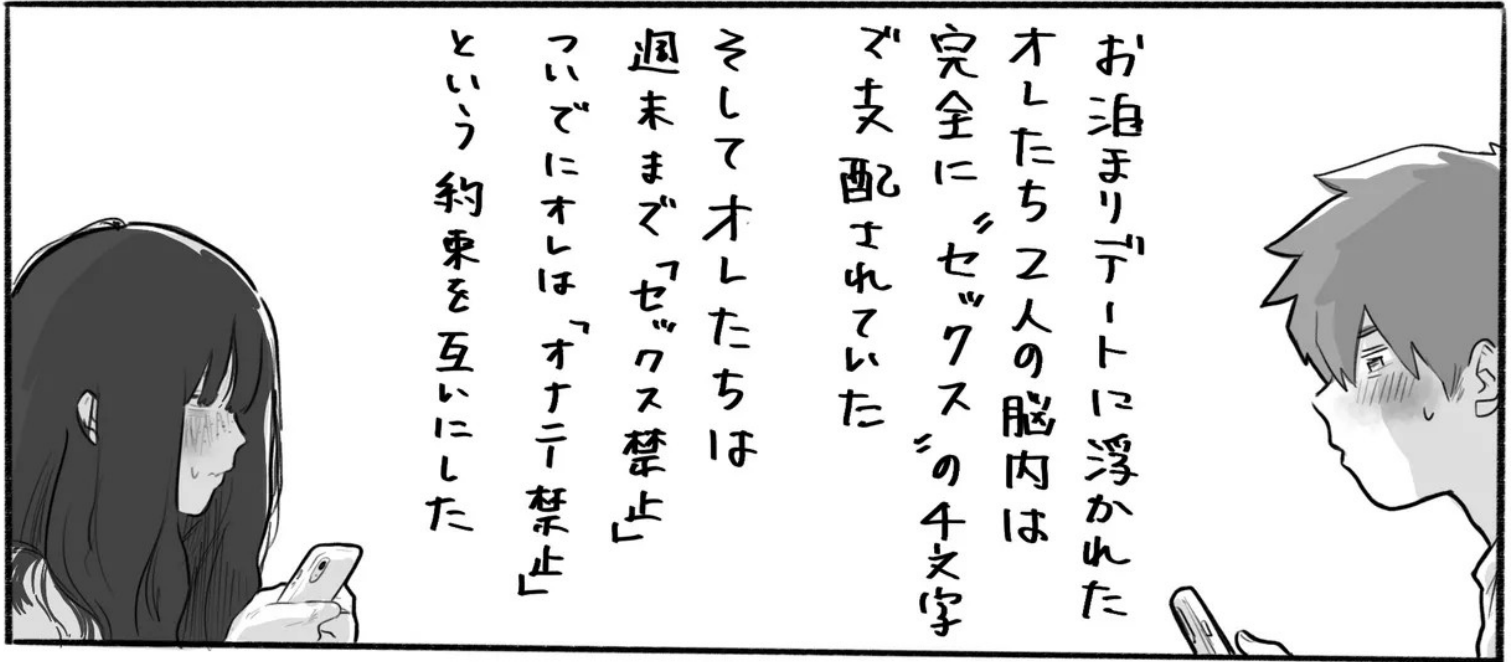 お泊まりデートに浮かれた
オレたち2人の脳内は
完全に〝セックス〟の4文字
で支配されていた
そしてオレたちは
週末まで「セックス禁止」
ついでにオレは「オナニー禁止」
という約束を互いにした